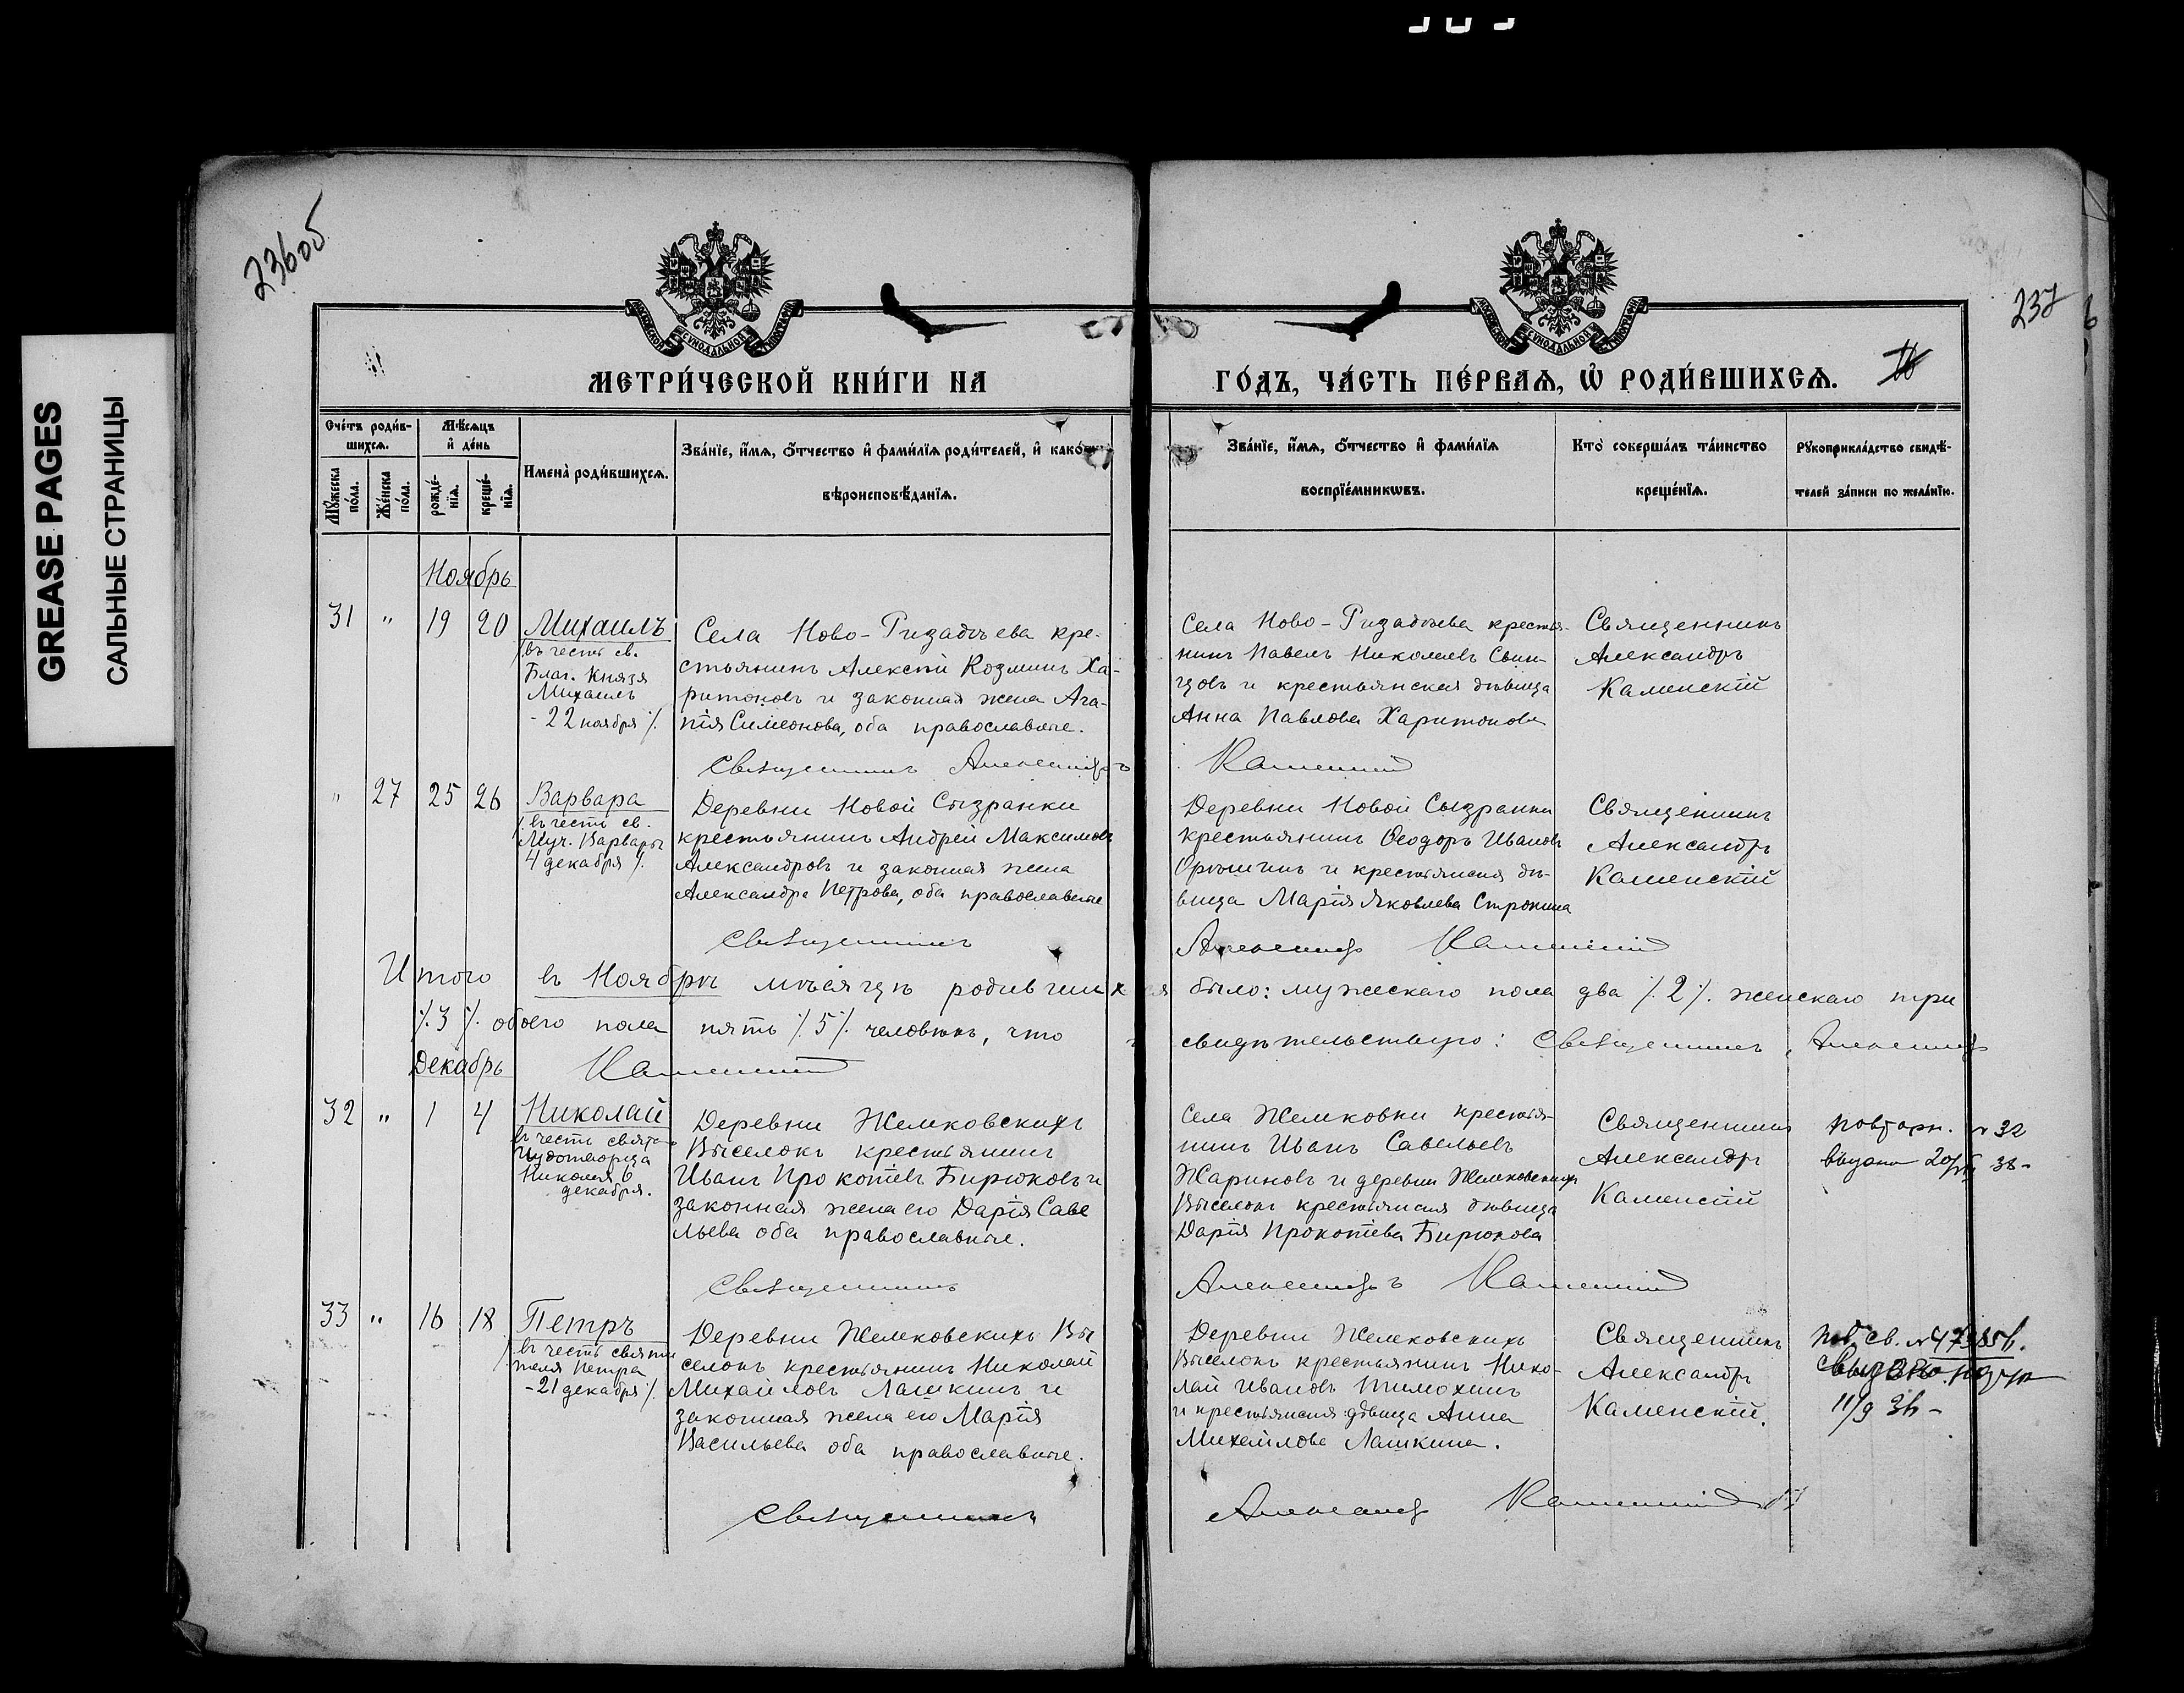 GREASE PAGES
САЛЬНЫЕ СТРАНИЦЫ
236об
237
МЕТРИ́ЧЕСКОЙ КНИ́ГИ НА
ГО́ДЪ, ЧА́СТЬ ПЕ́РВАѦ, Ѡ҆ РОДИ́ВШИХСѦ.
Сче́тъ роди́в-
шихсѧ.
Мꙋ́жеска
по́ла.
Же́нска
по́ла.
Мѣ́сѧцъ
и҆ де́нь
рожде́-
нїѧ.
креще́-
нїѧ.
Имена̀ роди́вшихсѧ.
Зва́нїе, и҆́мѧ, ѻ҆́тчество и҆ фами́лїѧ роди́телей, и҆ како́гѡ
вѣроисповѣ́данїѧ.
Зва́нїе, и҆́мѧ, ѻ҆́тчество и҆ фами́лїѧ
воспрїе́мникѡвъ.
Кто̀ соверша́лъ та́инство
креще́нїѧ.
Рꙋкоприкла́дство свидѣ́-
телей за́писи по жела́нїю.
Ноябрь
31 " 19 20
Михаилъ
въ честь св.
Благ. Князя
Михаилъ
- 22 ноября ⁒
Села Ново-Ризадѣева кре-
стьянинъ Алексѣй Козминъ Ха-
ритоновъ и законная жена Ага-
пія Симеонова, оба православные.
Села Ново-Ризадѣева крестья-
нинъ Павелъ Николаевъ Свин-
цовъ и крестьянская дѣвица
Анна Павлова Харитонова
Священникъ
Александръ
Каменскій
Священникъ Александръ Каменскій
" 27 25 26
Варвара
⁒ въ честь св.
Муч. Варвары
4 декабря ⁒
Деревни Новой Сызранки
крестьянинъ Андрей Максимовъ
Александровъ и законная жена
Александра Петрова, оба православные
Деревни Новой Сызранки
крестьянинъ Ѳеодоръ Ивановъ
и крестьянская дѣ-
вица Марія Яковлева Стронина
Священникъ
Александръ
Каменскій
Священникъ Александръ Каменскій
Итого въ Ноябрѣ мѣсяцѣ родившихся было: мужескаго пола два ⁒ 2 ⁒ женскаго три
⁒ 3 ⁒ обоего пола пять ⁒ 5 ⁒ человѣкъ, что свидѣтельствую: Священникъ Александръ
Каменскій
Декабрь
32 " 1 4
Николай
въ честь свят.
Чудотворца
Николая 6
декабря.
Деревни Жемковскихъ
Выселокъ крестьянинъ
Иванъ Прокопіевъ Бирюковъ и
законная жена его Дарія Саве
льева оба православные.
Села Жемковки крестья-
нинъ Иванъ Савельевъ
Жариновъ и деревни Жемковскихъ
Выселокъ крестьянская дѣвица
Дарія Прокопіева Бирюкова
Священникъ
Александръ
Каменскій
повторн. № 32
выдано 20/VII 38-
Священникъ Александръ Каменскій
33 " 16 18
Петръ
⁒ въ честь святи
теля Петра
- 21 декабря ⁒
Деревни Жемковскихъ Вы
селокъ крестьянинъ Николай
Михайловъ Лашкинъ и
законная жена его Марія
Васильева оба православные.
Деревни Жемковскихъ
Выселокъ крестьянинъ Нико-
лай Ивановъ Тимохинъ
и крестьянская дѣвица Анна
Михайлова Лашкина.
Священникъ
Александръ
Каменскій.
11/9 36-
Священникъ Александръ Каменскій